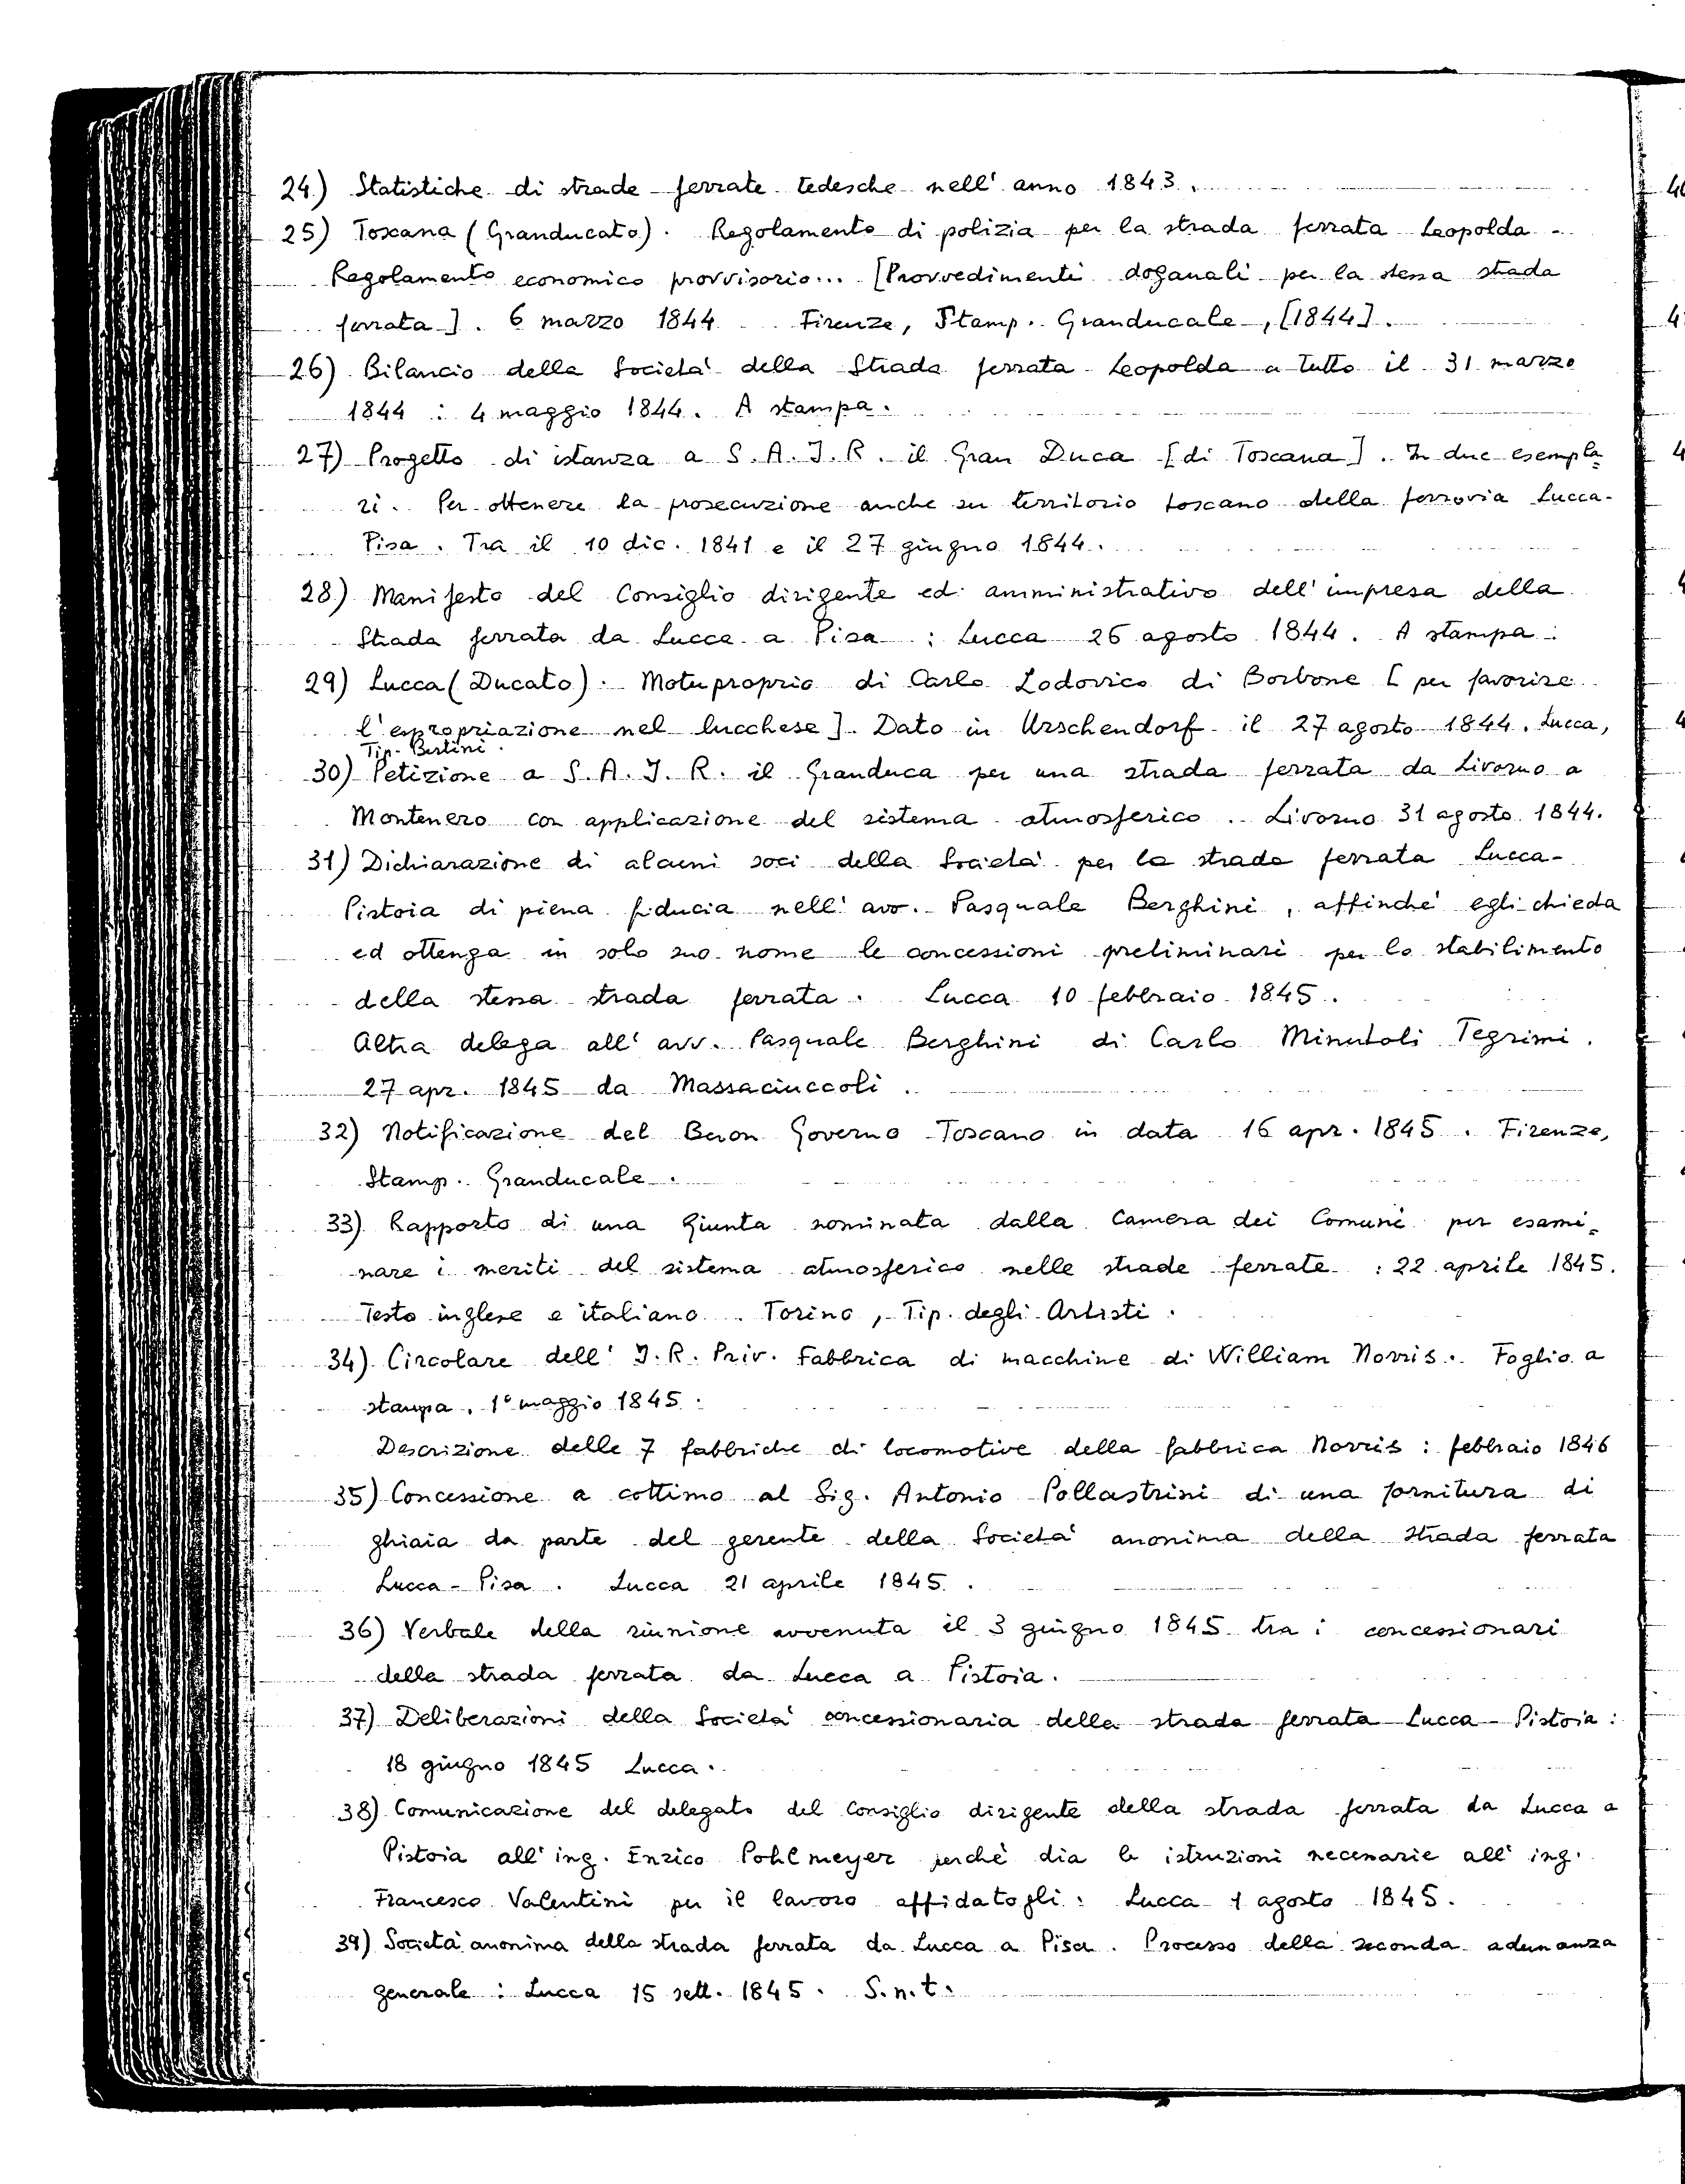 24) Statistiche di strade ferrate tedesche nell'anno 1843.
25) Toscana (Granducato). Regolamento di polizia per la strada ferrata Leopolda -
Regolamento economico provvisorio... [Provvedimenti doganali per la stessa strada
ferrata]. 6 marzo 1844 Firenze, Stamp. Granducale, [1844].
26) Bilancio della Società della Strada ferrata Leopolda a tutto il 31 marzo
1844 : 4 maggio 1844. A stampa.
27) Progetto di istanza a S.A.I.R. il Gran Duca [di Toscana]. In due esempla=
ri. Per ottenere la prosecuzione anche su territorio toscano della ferrovia Lucca-
Pisa. Tra il 10 dic. 1841 e il 27 giugno 1844.
28) Manifesto del Consiglio dirigente ed amministrativo dell'impresa della
Strada ferrata da Lucca a Pisa : Lucca 26 agosto 1844. A stampa.
29) Lucca (Ducato). Motuproprio di Carlo Lodovico di Borbone [per favorire
l'espropriazione nel lucchese]. Dato in Urschendorf il 27 agosto 1844. Lucca,
Tip. Bertini.
30) Petizione a S.A.I.R. il Granduca per una strada ferrata da Livorno a
Montenero con applicazione del sistema atmosferico. Livorno 31 agosto 1844.
31) Dichiarazione di alcuni soci della Società per la strada ferrata Lucca-
Pistoia di piena fiducia nell'avv. Pasquale Berghini, affinché egli chieda
ed ottenga in solo suo nome le concessioni preliminari per lo stabilimento
della stessa strada ferrata. Lucca 10 febbraio 1845.
Altra delega all'avv. Pasquale Berghini di Carlo Minutoli Tegrimi.
27 apr. 1845 da Massaciuccoli.
32) Notificazione del Buon Governo Toscano in data 16 apr. 1845. Firenze,
Stamp. Granducale.
33) Rapporto di una Giunta nominata dalla Camera dei Comuni per esami=
nare i meriti del sistema atmosferico nelle strade ferrate : 22 aprile 1845.
Testo inglese e italiano. Torino, Tip. degli Artisti.
34) Circolare dell'I.R. Priv. Fabbrica di macchine di William Norris. Foglio a
stampa. 1° maggio 1845.
Descrizione delle 7 fabbriche di locomotive della fabbrica Norris : febbraio 1846
35) Concessione a cottimo al Sig. Antonio Pollastrini di una fornitura di
ghiaia da parte del gerente della Società anonima della strada ferrata
Lucca-Pisa. Lucca 21 aprile 1845.
36) Verbale della riunione avvenuta il 3 giugno 1845 tra i concessionari
della strada ferrata da Lucca a Pistoia.
37) Deliberazioni della Società concessionaria della strada ferrata Lucca-Pistoia :
18 giugno 1845 Lucca.
38) Comunicazione del delegato del Consiglio dirigente della strada ferrata da Lucca a
Pistoia all'ing. Enrico Pohlmeyer perché dia le istruzioni necessarie all'ing.
Francesco Valentini per il lavoro affidatogli : Lucca 1 agosto 1845.
39) Società anonima della strada ferrata da Lucca a Pisa. Processo della seconda adunanza
generale : Lucca 15 sett. 1845. S.n.t.